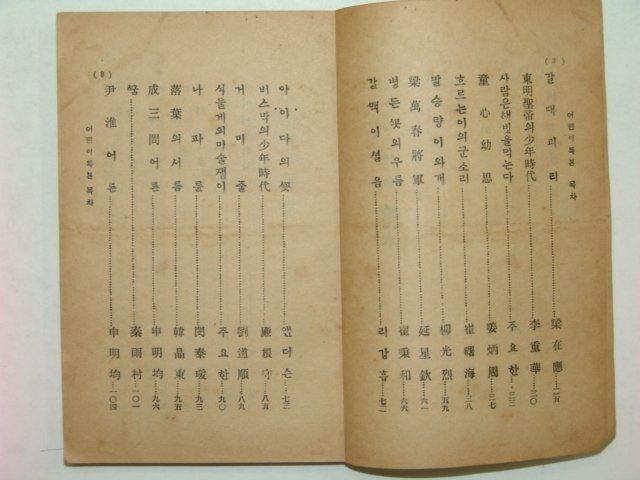 (2)
어린이독본 목차
갈대피리 梁在應 二五
東明聖帝의少年時代 李重華 三〇
사람은해빗을먹는다 주요한 三二
童心幼思 姜炳周 三七
흐르는이의군소리 崔曙海 三八
말승량이와개 柳光烈 五九
梁萬春將軍 延星欽 六一
병든꼿의우름 崔秉和 六六
갈맥이설음 리강흡 七二
아이다의꼿 앤더슨 七三
비스막의少年時代 廉根守 八五
거미줄 劉道順 八九
식물게의마술쟁이 주요한 九〇
나파룬 閔泰瑗 九三
落葉의서름 韓晶東 九五
成三問어른 申明均 九六
쌈 秦雨村 一〇一
尹淮어른 申明均 一〇四
(3)
어린이독본 목차